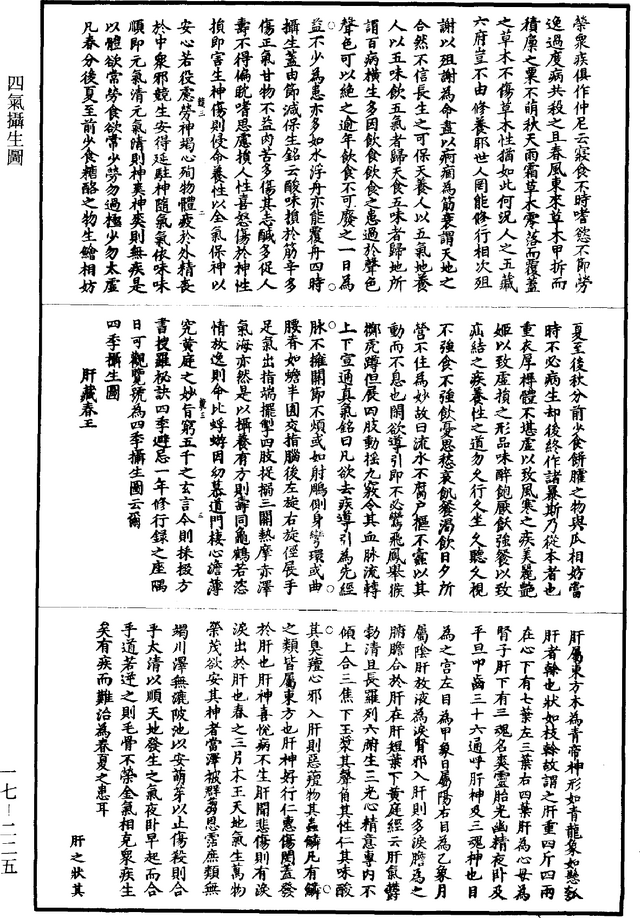 四氣攝生圖
榮衆疾俱作仲尼云寢食不時嗜慾不節勞
逸過度病共殺之且春風東來草木甲拆而
積廩之粟不萌秋天雨霜草木零落而覆蓋
之草木不傷草木性猶如此何況人之五藏
六府豈不由修養耶世人罔能修行相次殂
謝以殂謝為命盡以疴痼為筋衰謂天地之
合然不信長生之可保天養人以五氣地養
人以五味飲五氣者歸天食五味者歸地所
謂百病橫生多因飲食飲食之患過於聲色
聲色可以絕之逾年飲食不可廢之一日為
益不少為患亦多如水浮舟亦能覆舟四時
攝生蓋由節減保生銘云酸味損於筋辛多
傷正氣甘物不益肉苦多傷其志鹹多促人
壽不得偏耽嗜思慮損人性喜怒傷於神性
損即害生神傷則侵命養性以全氣保神以
安心若役慮勞神竭心殉物體疲於外精喪
於中衆邪競生安得延駐神隨氣氣依味味
順即元氣清元氣清則神美神美則無疾是
以體欲常勞食欲常少勞勿過極少勿太虛
凡春分後夏至前少食糟酪之物生鱠相妨
夏至後秋分前少食餅臛之物與瓜相妨當
時不必病生却後終作諸暴斯乃從本者也
重衣厚褥體不堪虛以致風寒之疾美麗艷
姬以致虛損之形品味醉飽厭飲強餐以致
疝結之疾養性之道勿久行久坐久聽久視
不強食不強飲憂思愁哀飢餐渴飲日夕所
營不住為妙故曰流水不腐戶樞不蠹以其
動而不息也閑欲導引即不必鸞飛風舉猨
擲虎蹲但展四肢動搖九竅令其血脉流轉
上下宣通真氣銘曰凡欲去疾導引為先經
脉不擁關節不煩或如射鵰側身彎環或曲
腰脊如蟾半圓交指腦後左旋右旋徑展手
足氣出指端擺掣四肢捉搦三關熱摩赤澤
氣海亦然是以攝養有方則壽同龜鶴若恣
情故逸則命比蜉蝣因幼慕道門棲心澹薄
究黃庭之妙旨窮五千之玄言今則採掇方
書搜羅秘訣四季避忌一年修行錄之座隅
日可觀覽號為四季攝生圖云爾
四季攝生圖
肝藏春王
肝屬東方木為青帝神形如青龍象如懸瓠
肝者幹也狀如枝幹故謂之肝重四斤四兩
在心下有七葉左三葉右四葉肝為心母為
腎子肝下有三魂名爽靈胎光幽精夜卧及
平旦叩齒三十六通呼肝神及三魂神也目
為之宮左目為甲象日屬陽右目為乙象月
屬陰肝放液為淚腎邪入肝則多淚膽為之
腑膽合於肝在肝短葉下黃庭經云肝氣欝
勃清且長羅列六腑生三光心精意專內不
傾上合三焦下玉漿其聲角其性仁其味酸
其臭羶心邪入肝則惡羶物其蟲鱗凡有鱗
之類皆屬東方也肝神好行仁惠傷憫蓋發
於肝也肝神喜悅病不生肝聞悲傷則有淚
淚出於肝也春之三月木王天地氣生萬物
榮茂欲安其神者當澤被群芻恩霑庶類無
竭川澤無漉陂池以安萌芽以止傷殺則合
乎太清以順天地發生之氣夜卧早起而合
乎道若逆之則毛骨不榮金氣相克衆疾生
矣有疾而難治為春夏之患耳
肝之狀其
一七—二二五